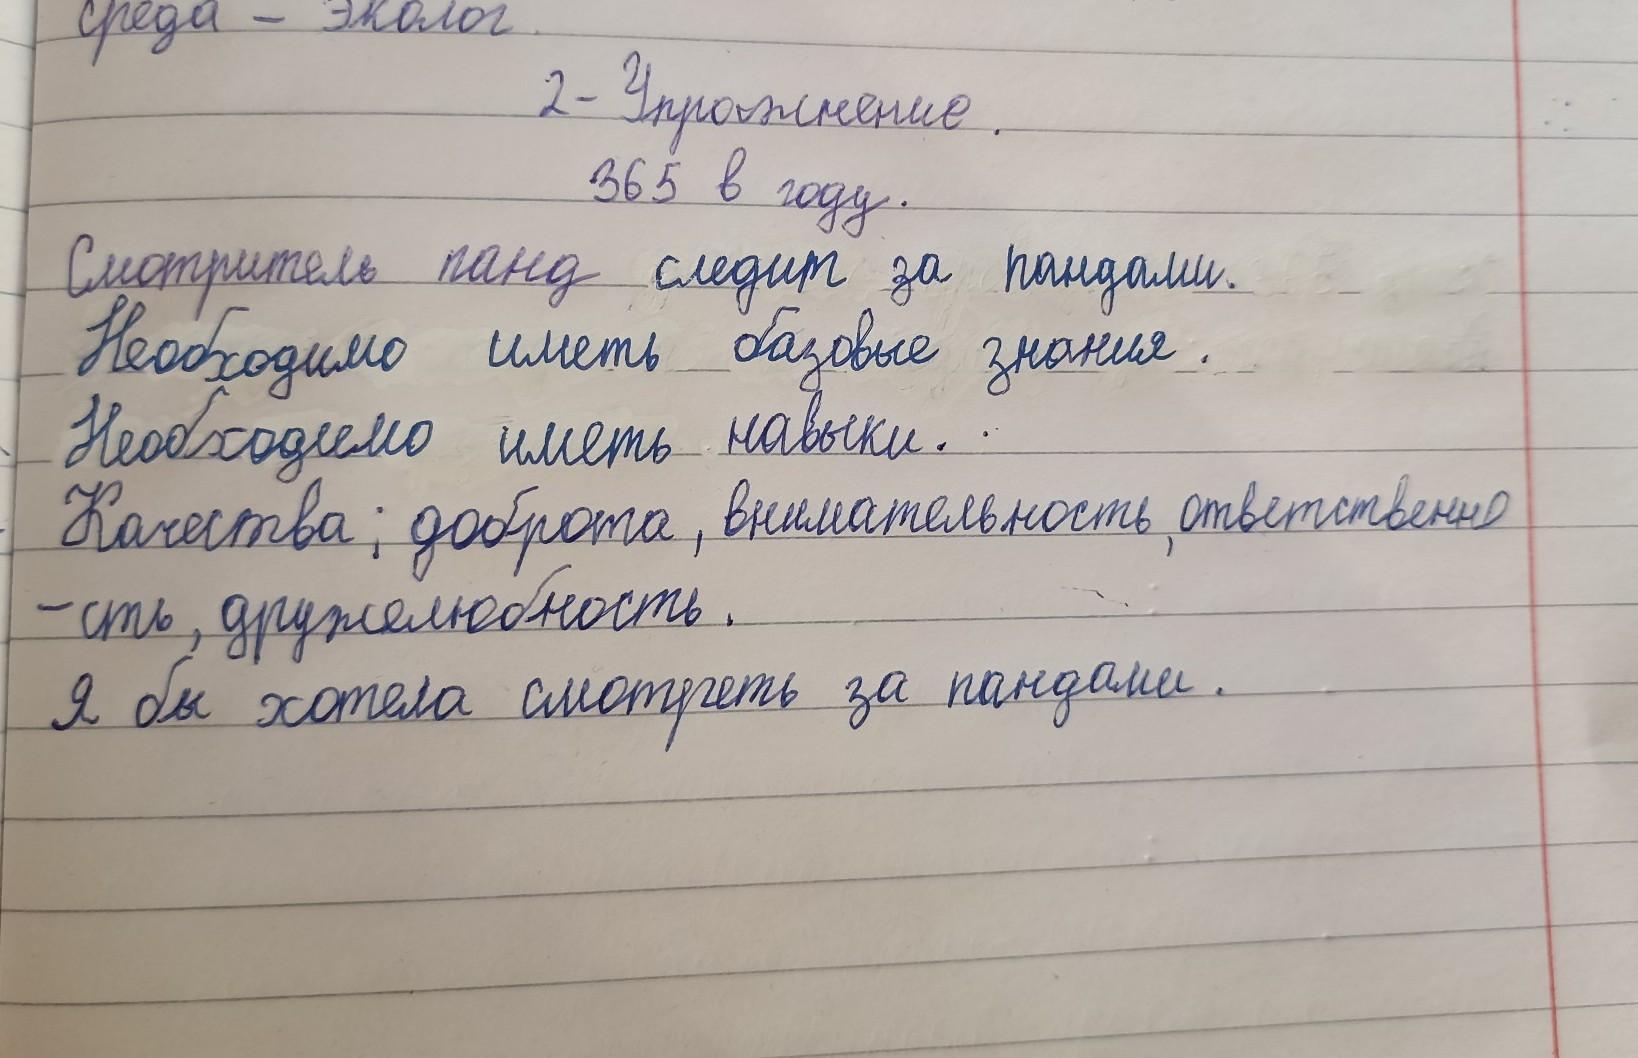 среда – эколог.
2-Упражнение.
365 в году.
Смотритель панд следит за пандами.
Необходимо иметь базовые знания.
Необходимо иметь навыки.
Качества; доброта, внимательность, ответственно
-сть, дружелюбность.
Я бы хотела смотреть за пандами.